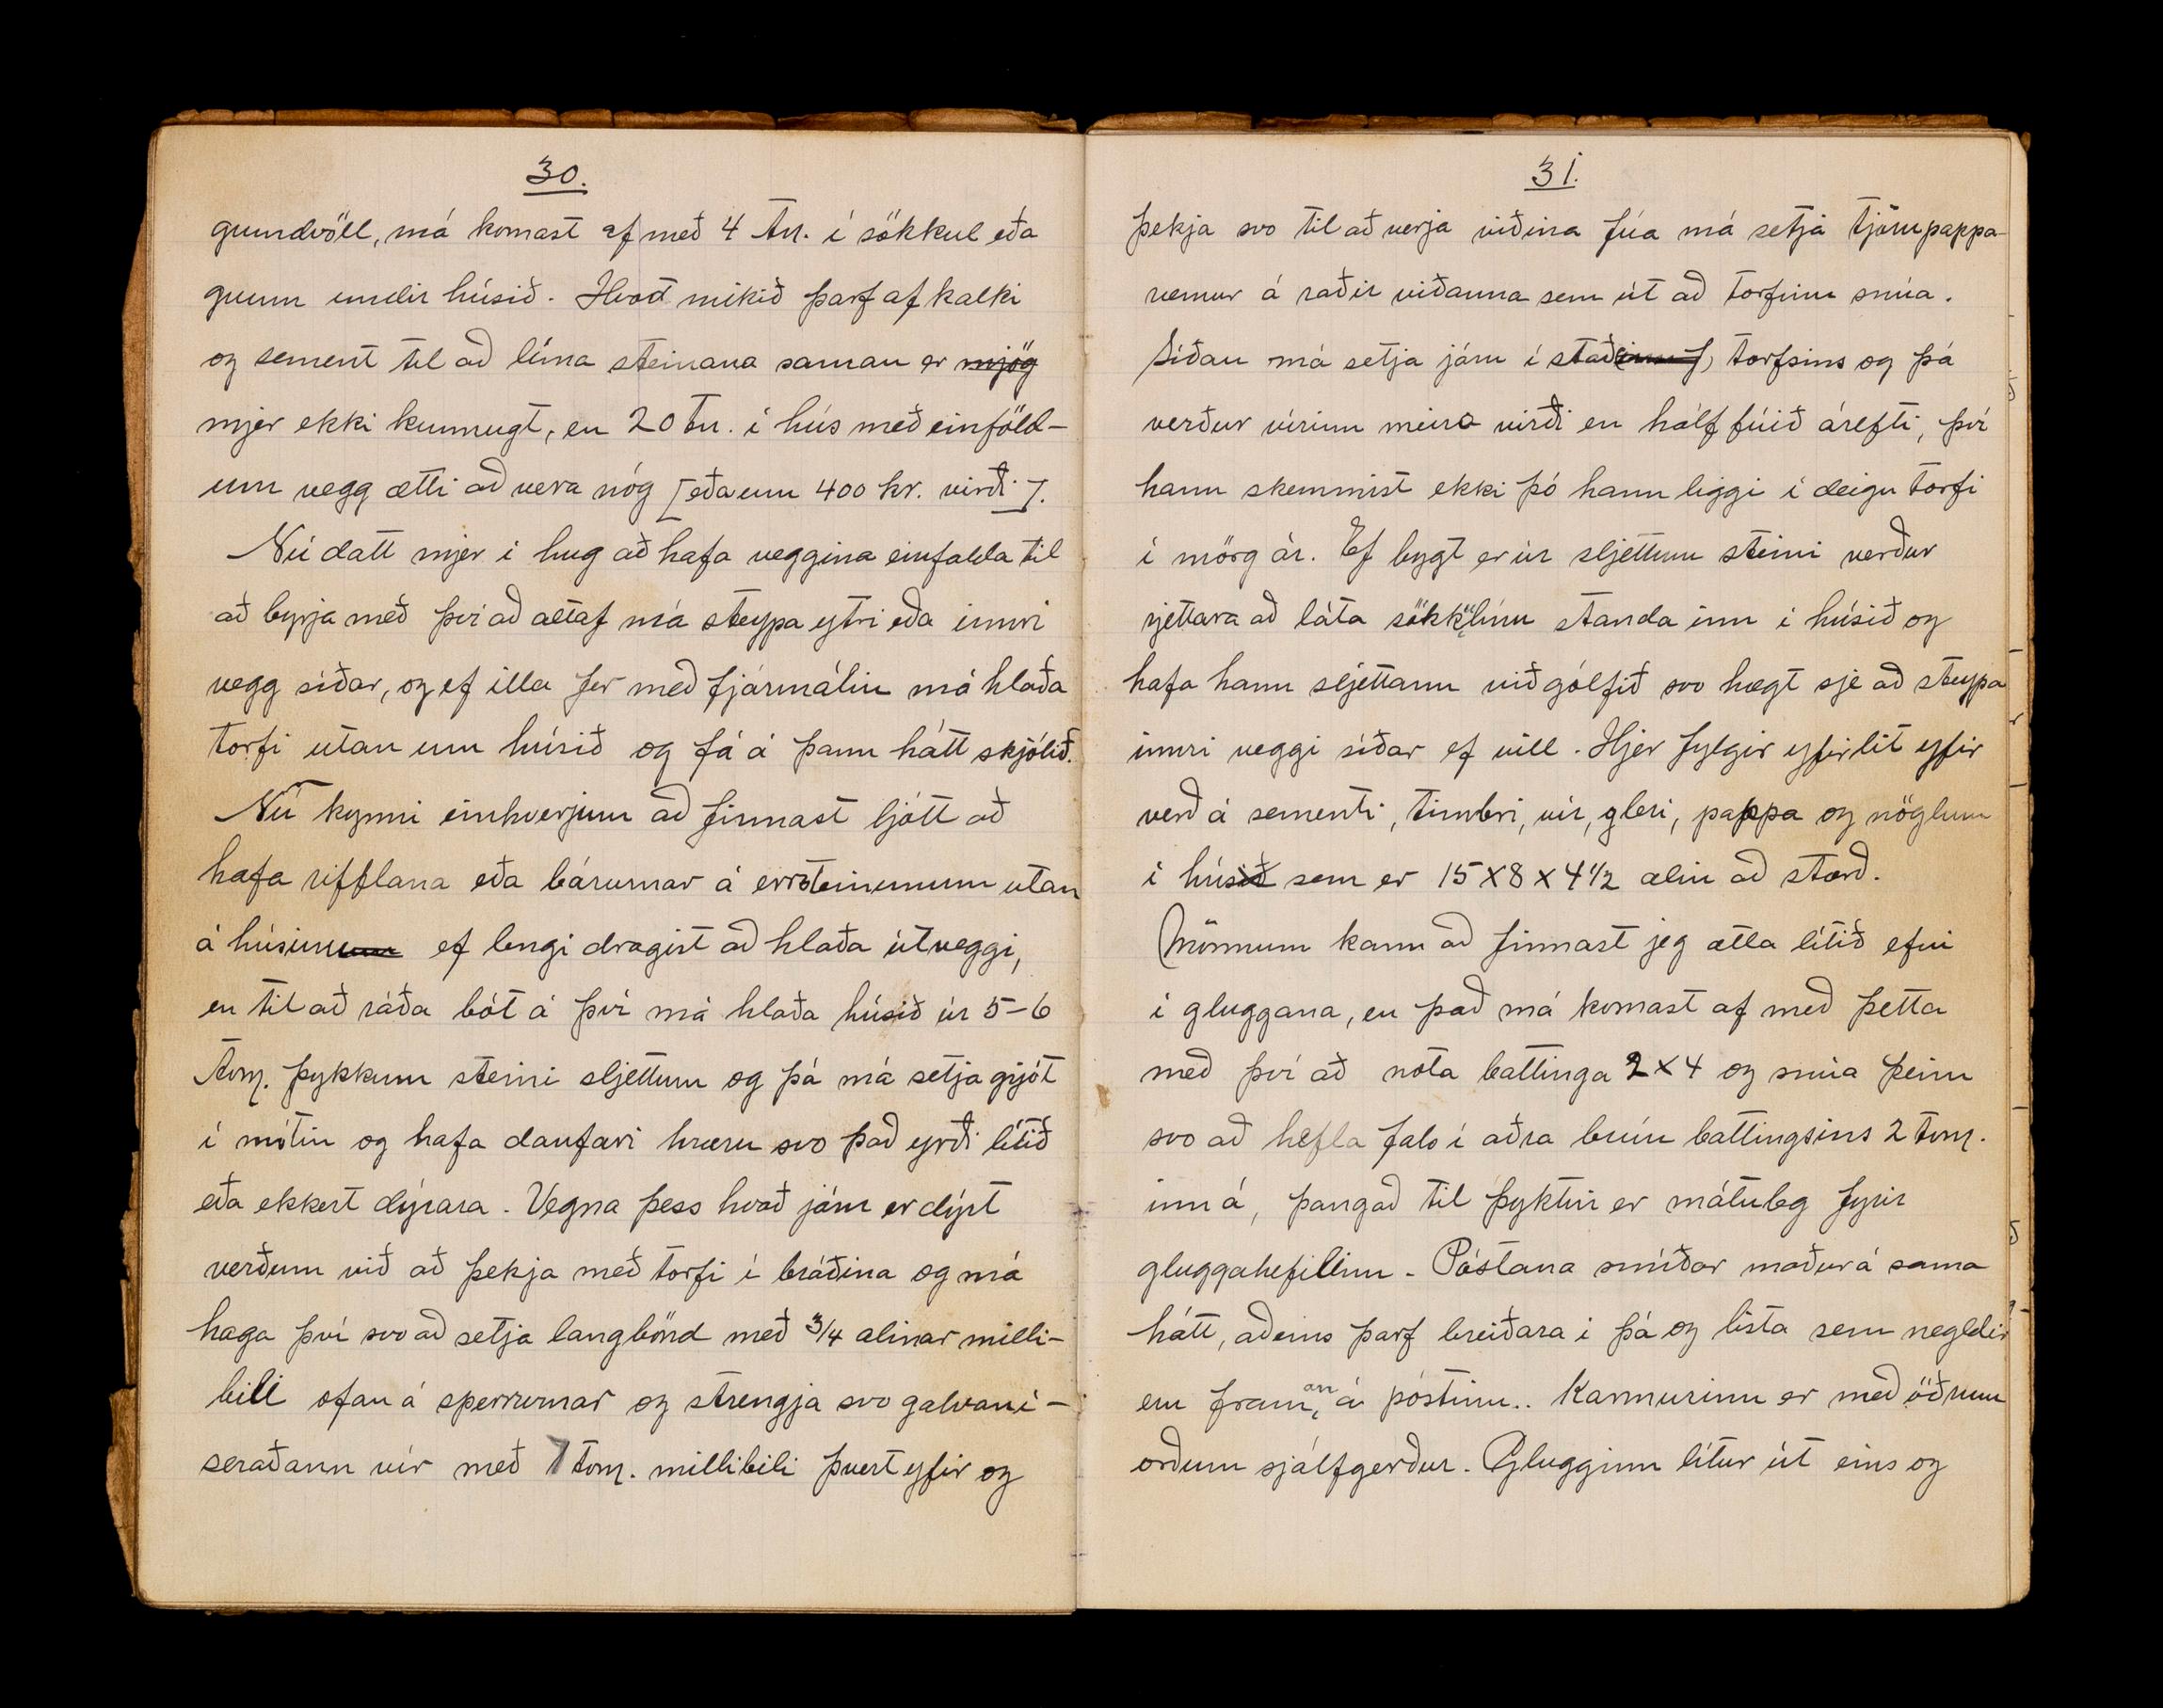 30.
gumdvöll, má komast af með 4 tn. í sökkul eða
gunn undir húsið. Hvað mikið þarf af kalki
og sement til að líma steinana saman er mjög
mjer ekki kunnugt, en 20 tn. í hús með einföld-
um vegg ætti að vera nóg [eða um 400 kr. virði].
Nú datt mjer í hug að hafa veggina einfalda til
að byrja með því að altaf má steypa ytri eða innri
vegg síðar, og ef illa fer með fjármálin má hlaða
torfi utan um húsið og fá á þann hátt skjólið.
Nú kynni einhverjum að finnast ljótt að
hafa rifflana eða bárurnar á errsteinunum utan
á húsinu ef lengi dragist að hlaða útveggi,
en til að ráða bót á því má hlaða húsið úr 5-6
tom. þykkum steini sljettum og þá má setja grjót
í mótin og hafa daufari hræru svo það yrði lítið
eða ekkert dýrara. Vegna þess hvað járn er dýrt
verðum við að þekja með torfi í bráðina og má
haga því svo að setja langbönd með 3/4 alinar milli-
bili ofan á sperrurnar og strengja svo galvaní-
seraðann vír með 7 tom. millibili þvert yfir og
31.
þekja svo til að verja viðina fúa má setja tjörupappa-
remur á raðir viðanna sem út að torfinu snúa.
Síðan má setja járn í stað torfsins og þá
verður vírinn meira virði en hálf fúið árefti, því
hann skemmist ekki þó hann liggi í deigu torfi
í mörg ár. Ef bygt er úr sljettum steini verður
rjettara að láta sökkulinn standa inn í húsið og
hafa hann sljettann við gólfið svo hægt sje að steypa
innri veggi síðar ef vill. Hjer fylgir yfirlit yfir
verð á sementi, timbri, vír, gleri, pappa og nöglum
í hús sem er 15 X 8 X 4 1/2 alin að stærð.
Mönnum kann að finnast jeg ætla lítið efni
í gluggana, en það má komast af með þetta
með því að nota battinga 2 X 4 og snúa þeim
svo að hefla fals í aðra brún battingsins 2 tom.
inn á, þangað til þyktin er mátuleg fyrir
gluggahefilinn. Póstana smíðar maður á sama
hátt, aðeins þarf breiðara í þá og lista sem negldir
eru framan á póstinn.. Karmurinn er með öðrum
orðum sjálfgerður. Glugginn lítur út eins og